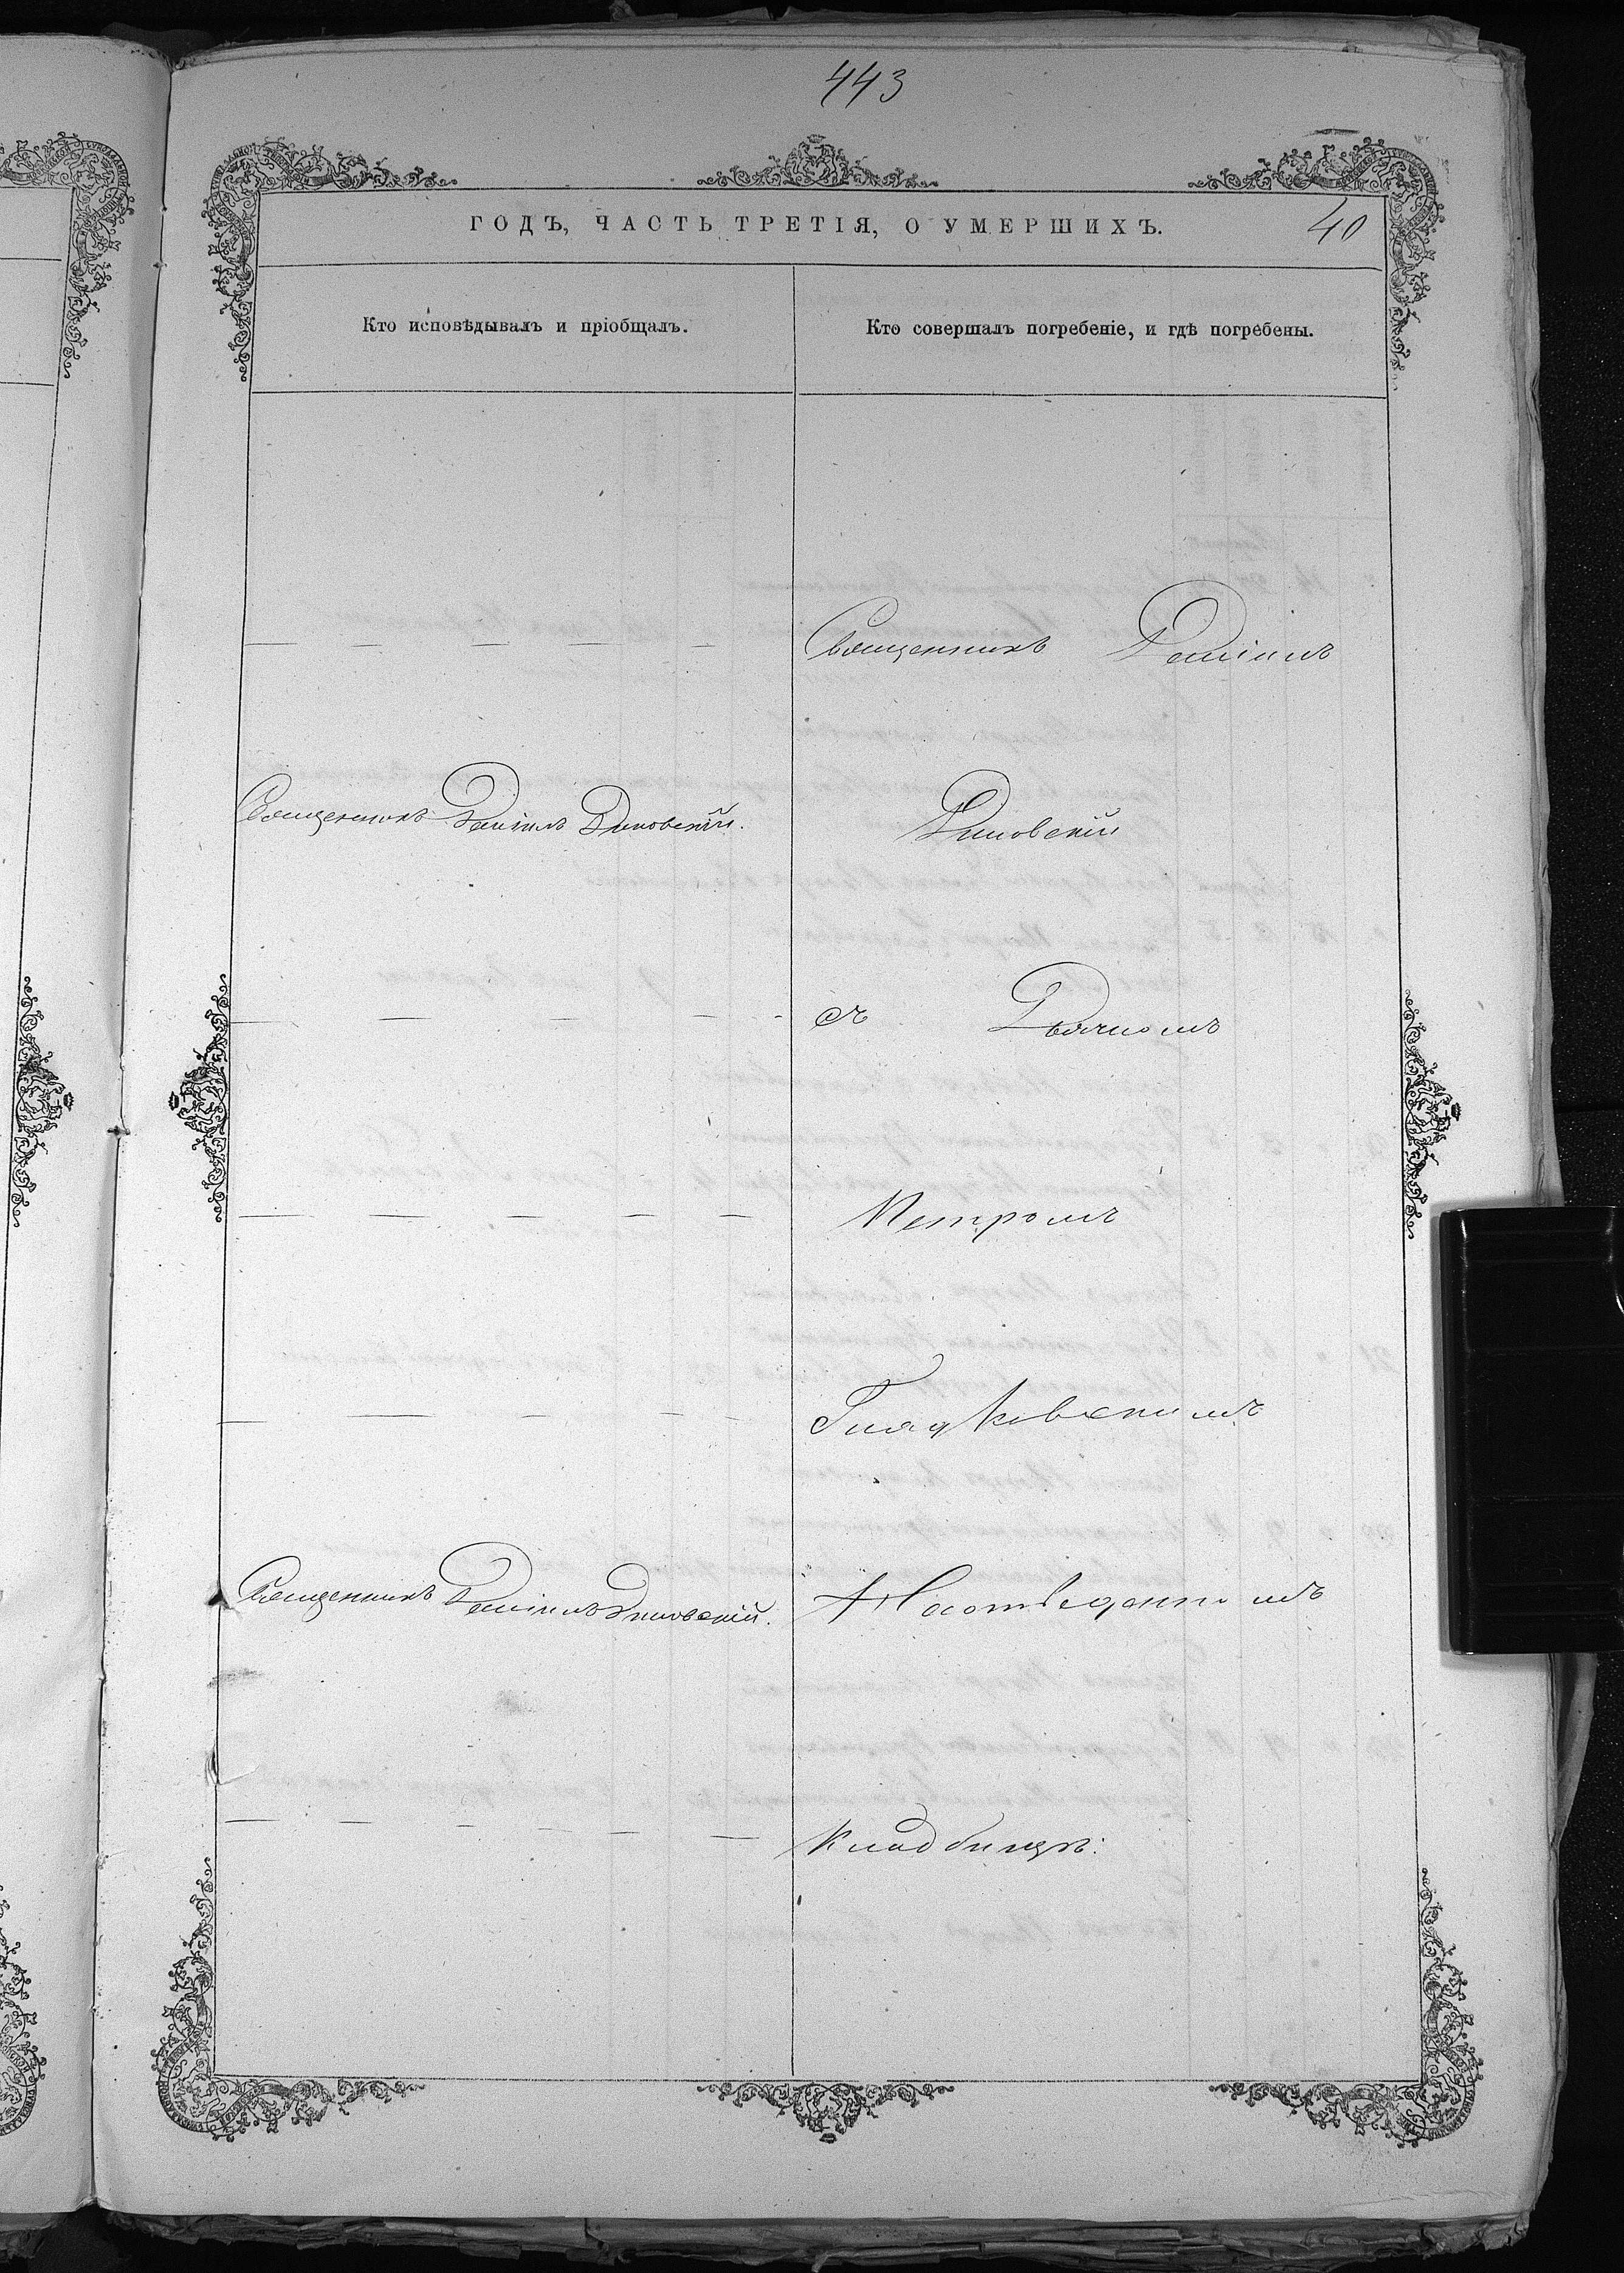 443
ГОДЪ, ЧАСТЬ ТРЕТІЯ, О УМЕРШИХЪ.
40
Кто исповѣдывалъ и пріобщалъ.
Кто совершалъ погребеніе, и гдѣ погребены.
Священникъ Даніилъ
Священникъ Даніилъ
съ Дьячкомъ
Петромъ
Гладковскимъ
Священникъ Даніилъ
Кладбищѣ: